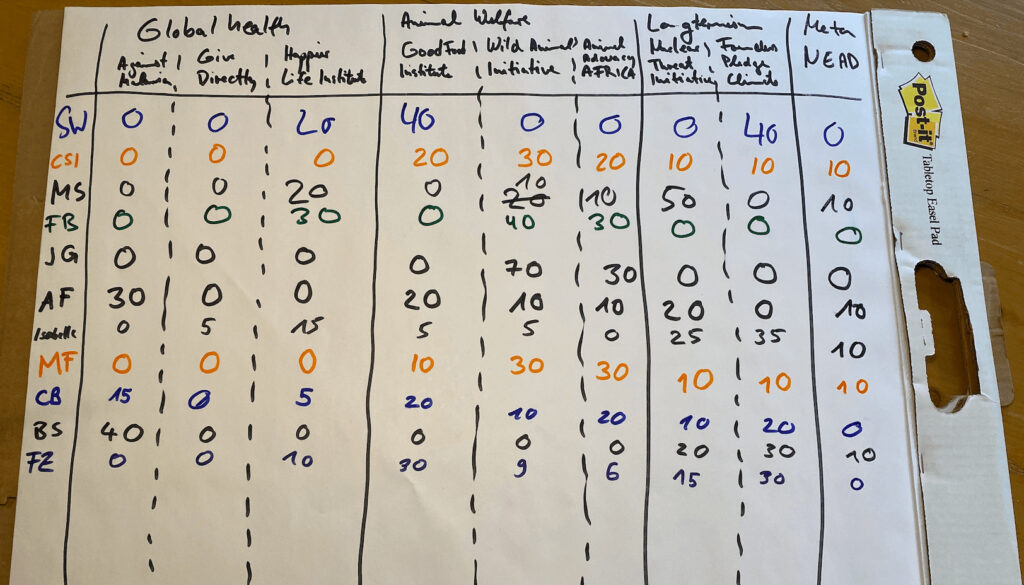 Global health Animal Welfare Longtermism Meta
Against Malaria Give Directly Happier Life Institute Good Food Institute Wild Animal Initiative Animal Advocacy AFRICA Nuclear Threat Initiative Founders Pledge Climate NEAD
SW 0 0 20 40 0 0 0 40 0
CSI 0 0 0 20 30 20 10 10 10
MS 0 0 20 0 20 10 10 50 0 10
FB 0 0 30 0 40 30 0 0 0
JG 0 0 0 0 70 30 0 0 0
AF 30 0 0 20 10 10 20 0 10
Isabelle 0 5 15 5 5 0 25 35 10
MF 0 0 0 10 30 30 10 10 10
CB 15 0 5 20 10 20 10 20 0
BS 40 0 0 0 0 0 20 30 10
FZ 0 0 10 30 9 6 15 30 0
Post-it
Tabletop Easel Pad